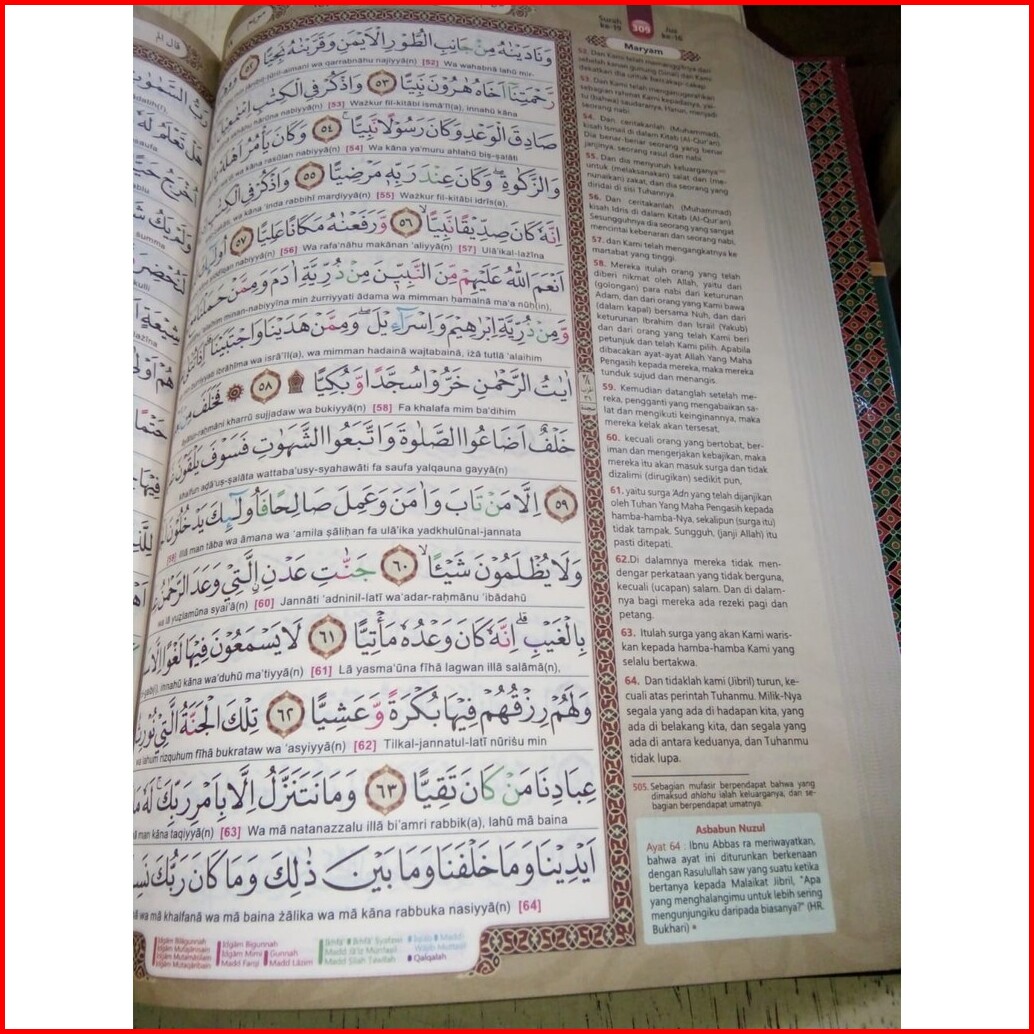 Surah
ke-19
309
Juz
ke-16
Maryam
قال الم
وَنَادَيْنٰهُ مِنْ جَانِبِ الطُّوْرِ الْاَيْمَنِ وَقَرَّبْنٰهُ نَجِيًّا ﴿٥٢﴾
wa qarrabnāhu najiyyā(n) [52] Wa wahabnā lahū mir-
رَّحْمَتِنَآ اَخَاهُ هٰرُوْنَ نَبِيًّا ﴿٥٣﴾ وَاذْكُرْ فِى الْكِتٰبِ
hārūna nabiyyā(n) [53] Ważkur fil-kitābi ismā'īl(a), innahū kāna
صَادِقَ الْوَعْدِ وَكَانَ رَسُوْلًا نَّبِيًّا ۚ ﴿٥٤﴾ وَكَانَ يَأْمُرُ اَهْلَهٗ
wa kāna rasūlan nabiyyā(n) [54] Wa kāna ya'muru ahlahū biṣ-ṣalāti
وَالزَّكٰوةِ ۖ وَكَانَ عِنْدَ رَبِّهٖ مَرْضِيًّا ﴿٥٥﴾ وَاذْكُرْ فِى الْكِتٰبِ
wa kāna 'inda rabbihī marḍiyyā(n) [55] Ważkur fil-kitābi idrīs(a),
اِنَّهٗ كَانَ صِدِّيْقًا نَّبِيًّا ۙ ﴿٥٦﴾ وَّرَفَعْنٰهُ مَكَانًا عَلِيًّا ﴿٥٧﴾
nabiyyā(n) [56] Wa rafa'nāhu makānan 'aliyyā(n) [57] Ulā'ikal-lażīna
اَنْعَمَ اللّٰهُ عَلَيْهِمْ مِّنَ النَّبِيّٖنَ مِنْ ذُرِّيَّةِ اٰدَمَ وَمِمَّنْ حَمَلْنَا
minan-nabiyyīna min żurriyyati ādama wa mimman ḥamalnā ma'a nūḥ(in),
وَّمِنْ ذُرِّيَّةِ اِبْرٰهِيْمَ وَاِسْرَاۤءِيْلَ ۖ وَمِمَّنْ هَدَيْنَا وَاجْتَبَيْنَا
ibrāhīma wa isrā'īl(a), wa mimman hadainā wajtabainā, iżā tutlā 'alaihim
اٰيٰتُ الرَّحْمٰنِ خَرُّوْا سُجَّدًا وَّبُكِيًّا ﴿٥٨﴾ ۞ فَخَلَفَ
kharrū sujjadaw wa bukiyyā(n) [58] Fa khalafa mim ba'dihim
خَلْفٌ اَضَاعُوا الصَّلٰوةَ وَاتَّبَعُوا الشَّهَوٰتِ فَسَوْفَ يَلْقَوْنَ
khalfun aḍā'uṣ-ṣalāta wattaba'usy-syahawāti fa saufa yalqauna gayyā(n)
﴿٥٩﴾ اِلَّا مَنْ تَابَ وَاٰمَنَ وَعَمِلَ صَالِحًا فَاُولٰۤىِٕكَ يَدْخُلُوْنَ
[59] Illā man tāba wa āmana wa 'amila ṣāliḥan fa ulā'ika yadkhulūnal-jannata
وَلَا يُظْلَمُوْنَ شَيْـًٔا ۙ ﴿٦٠﴾ جَنّٰتِ عَدْنِ ِۨالَّتِيْ وَعَدَ الرَّحْمٰنُ
wa lā yuẓlamūna syai'ā(n) [60] Jannāti 'adninil-latī wa'adar-raḥmānu 'ibādahū
بِالْغَيْبِ ۗ اِنَّهٗ كَانَ وَعْدُهٗ مَأْتِيًّا ﴿٦١﴾ لَا يَسْمَعُوْنَ فِيْهَا لَغْوًا
innahū kāna wa'duhū ma'tiyyā(n) [61] Lā yasma'ūna fīhā lagwan illā salāmā(n),
وَلَهُمْ رِزْقُهُمْ فِيْهَا بُكْرَةً وَّعَشِيًّا ﴿٦٢﴾ تِلْكَ الْجَنَّةُ الَّتِيْ
wa lahum rizquhum fīhā bukrataw wa 'asyiyyā(n) [62] Tilkal-jannatul-latī nūriṡu min
عِبَادِنَا مَنْ كَانَ تَقِيًّا ﴿٦٣﴾ وَمَا نَتَنَزَّلُ اِلَّا بِاَمْرِ رَبِّكَ ۚ
man kāna taqiyyā(n) [63] Wa mā natanazzalu illā bi'amri rabbik(a), lahū mā baina
اَيْدِيْنَا وَمَا خَلْفَنَا وَمَا بَيْنَ ذٰلِكَ وَمَا كَانَ رَبُّكَ
wa mā khalfanā wa mā baina żālika wa mā kāna rabbuka nasiyyā(n) [64]
52. Dan Kami telah memanggilnya dari
sebelah kanan gunung (Sinai) dan Kami
dekatkan dia untuk bercakap-cakap.
53. Dan Kami telah menganugerahkan
sebagian rahmat Kami kepadanya, yai-
tu (bahwa) saudaranya, Harun, menjadi
seorang nabi.
54. Dan ceritakanlah (Muhammad),
kisah Ismail di dalam Kitab (Al-Qur'an).
Dia benar-benar seorang yang benar
janjinya, seorang rasul dan nabi.
55. Dan dia menyuruh keluarganya
untuk (melaksanakan) salat dan (me-
nunaikan) zakat, dan dia seorang yang
diridai di sisi Tuhannya.
56. Dan ceritakanlah (Muhammad)
kisah Idris di dalam Kitab (Al-Qur'an).
Sesungguhnya dia seorang yang sangat
mencintai kebenaran dan seorang nabi,
57. dan Kami telah mengangkatnya ke
martabat yang tinggi.
58. Mereka itulah orang yang telah
diberi nikmat oleh Allah, yaitu dari
(golongan) para nabi dari keturunan
Adam, dan dari orang yang Kami bawa
(dalam kapal) bersama Nuh, dan dari
keturunan Ibrahim dan Israil (Yakub)
dan dari orang yang telah Kami beri
petunjuk dan telah Kami pilih. Apabila
dibacakan ayat-ayat Allah Yang Maha
Pengasih kepada mereka, maka mereka
tunduk sujud dan menangis.
59. Kemudian datanglah setelah me-
reka, pengganti yang mengabaikan sa-
lat dan mengikuti keinginannya, maka
mereka kelak akan tersesat.
60. kecuali orang yang bertobat, ber-
iman dan mengerjakan kebajikan, maka
mereka itu akan masuk surga dan tidak
dizalimi (dirugikan) sedikit pun,
61. yaitu surga 'Adn yang telah dijanjikan
oleh Tuhan Yang Maha Pengasih kepada
hamba-hamba-Nya, sekalipun (surga itu)
tidak tampak. Sungguh, (janji Allah) itu
pasti ditepati.
62.Di dalamnya mereka tidak men-
dengar perkataan yang tidak berguna,
kecuali (ucapan) salam. Dan di dalam-
nya bagi mereka ada rezeki pagi dan
petang.
63. Itulah surga yang akan Kami waris-
kan kepada hamba-hamba Kami yang
selalu bertakwa.
64. Dan tidaklah kami (Jibril) turun, ke-
cuali atas perintah Tuhanmu. Milik-Nya
segala yang ada di hadapan kita, yang
ada di belakang kita, dan segala yang
ada di antara keduanya, dan Tuhanmu
tidak lupa.
505. Sebagian mufasir berpendapat bahwa yang
dimaksud ahlahu ialah keluarganya, dan se-
bagian berpendapat umatnya.
Asbabun Nuzul
Ayat 64 : Ibnu Abbas ra meriwayatkan,
bahwa ayat ini diturunkan berkenaan
dengan Rasulullah saw yang suatu ketika
bertanya kepada Malaikat Jibril, "Apa
yang menghalangimu untuk lebih sering
mengunjungiku daripada biasanya?" (HR.
Bukhari)
Idgām Bigunnah
Idgām Mimi
Gunnah
Madd Farqi
Madd Lāzim
Ikhfā'
Ikhfā' Syafawi
Madd Jā'iz Munfaṣil
Madd Ṣilah Ṭawīlah
Qalqalah